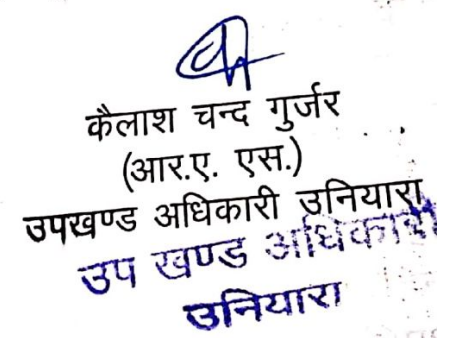 कैलाश चन्द गुर्जर
(आर.ए. एस.)
उपखण्ड अधिकारी उनियारा
उप खण्ड अधिकारी
उनियारा